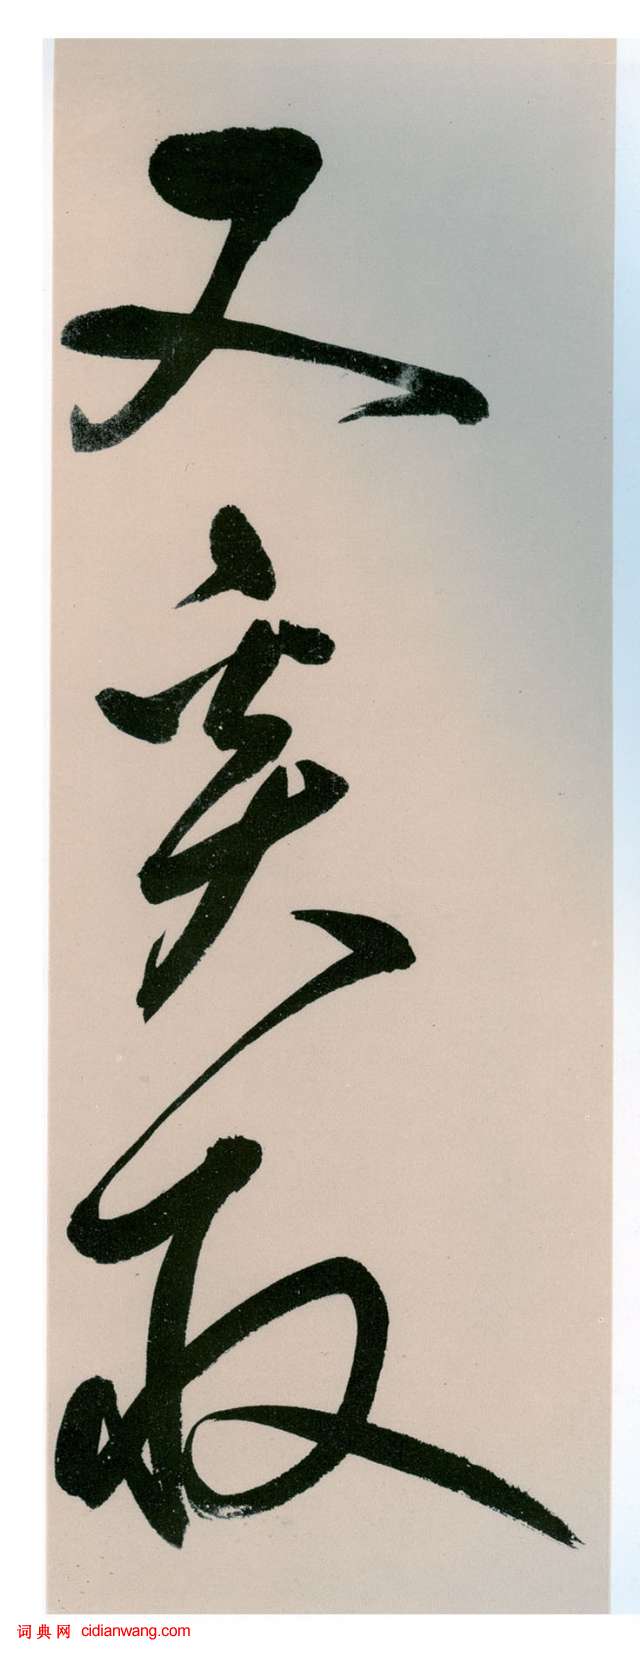 又奚敢
词典网 cidianwang.com